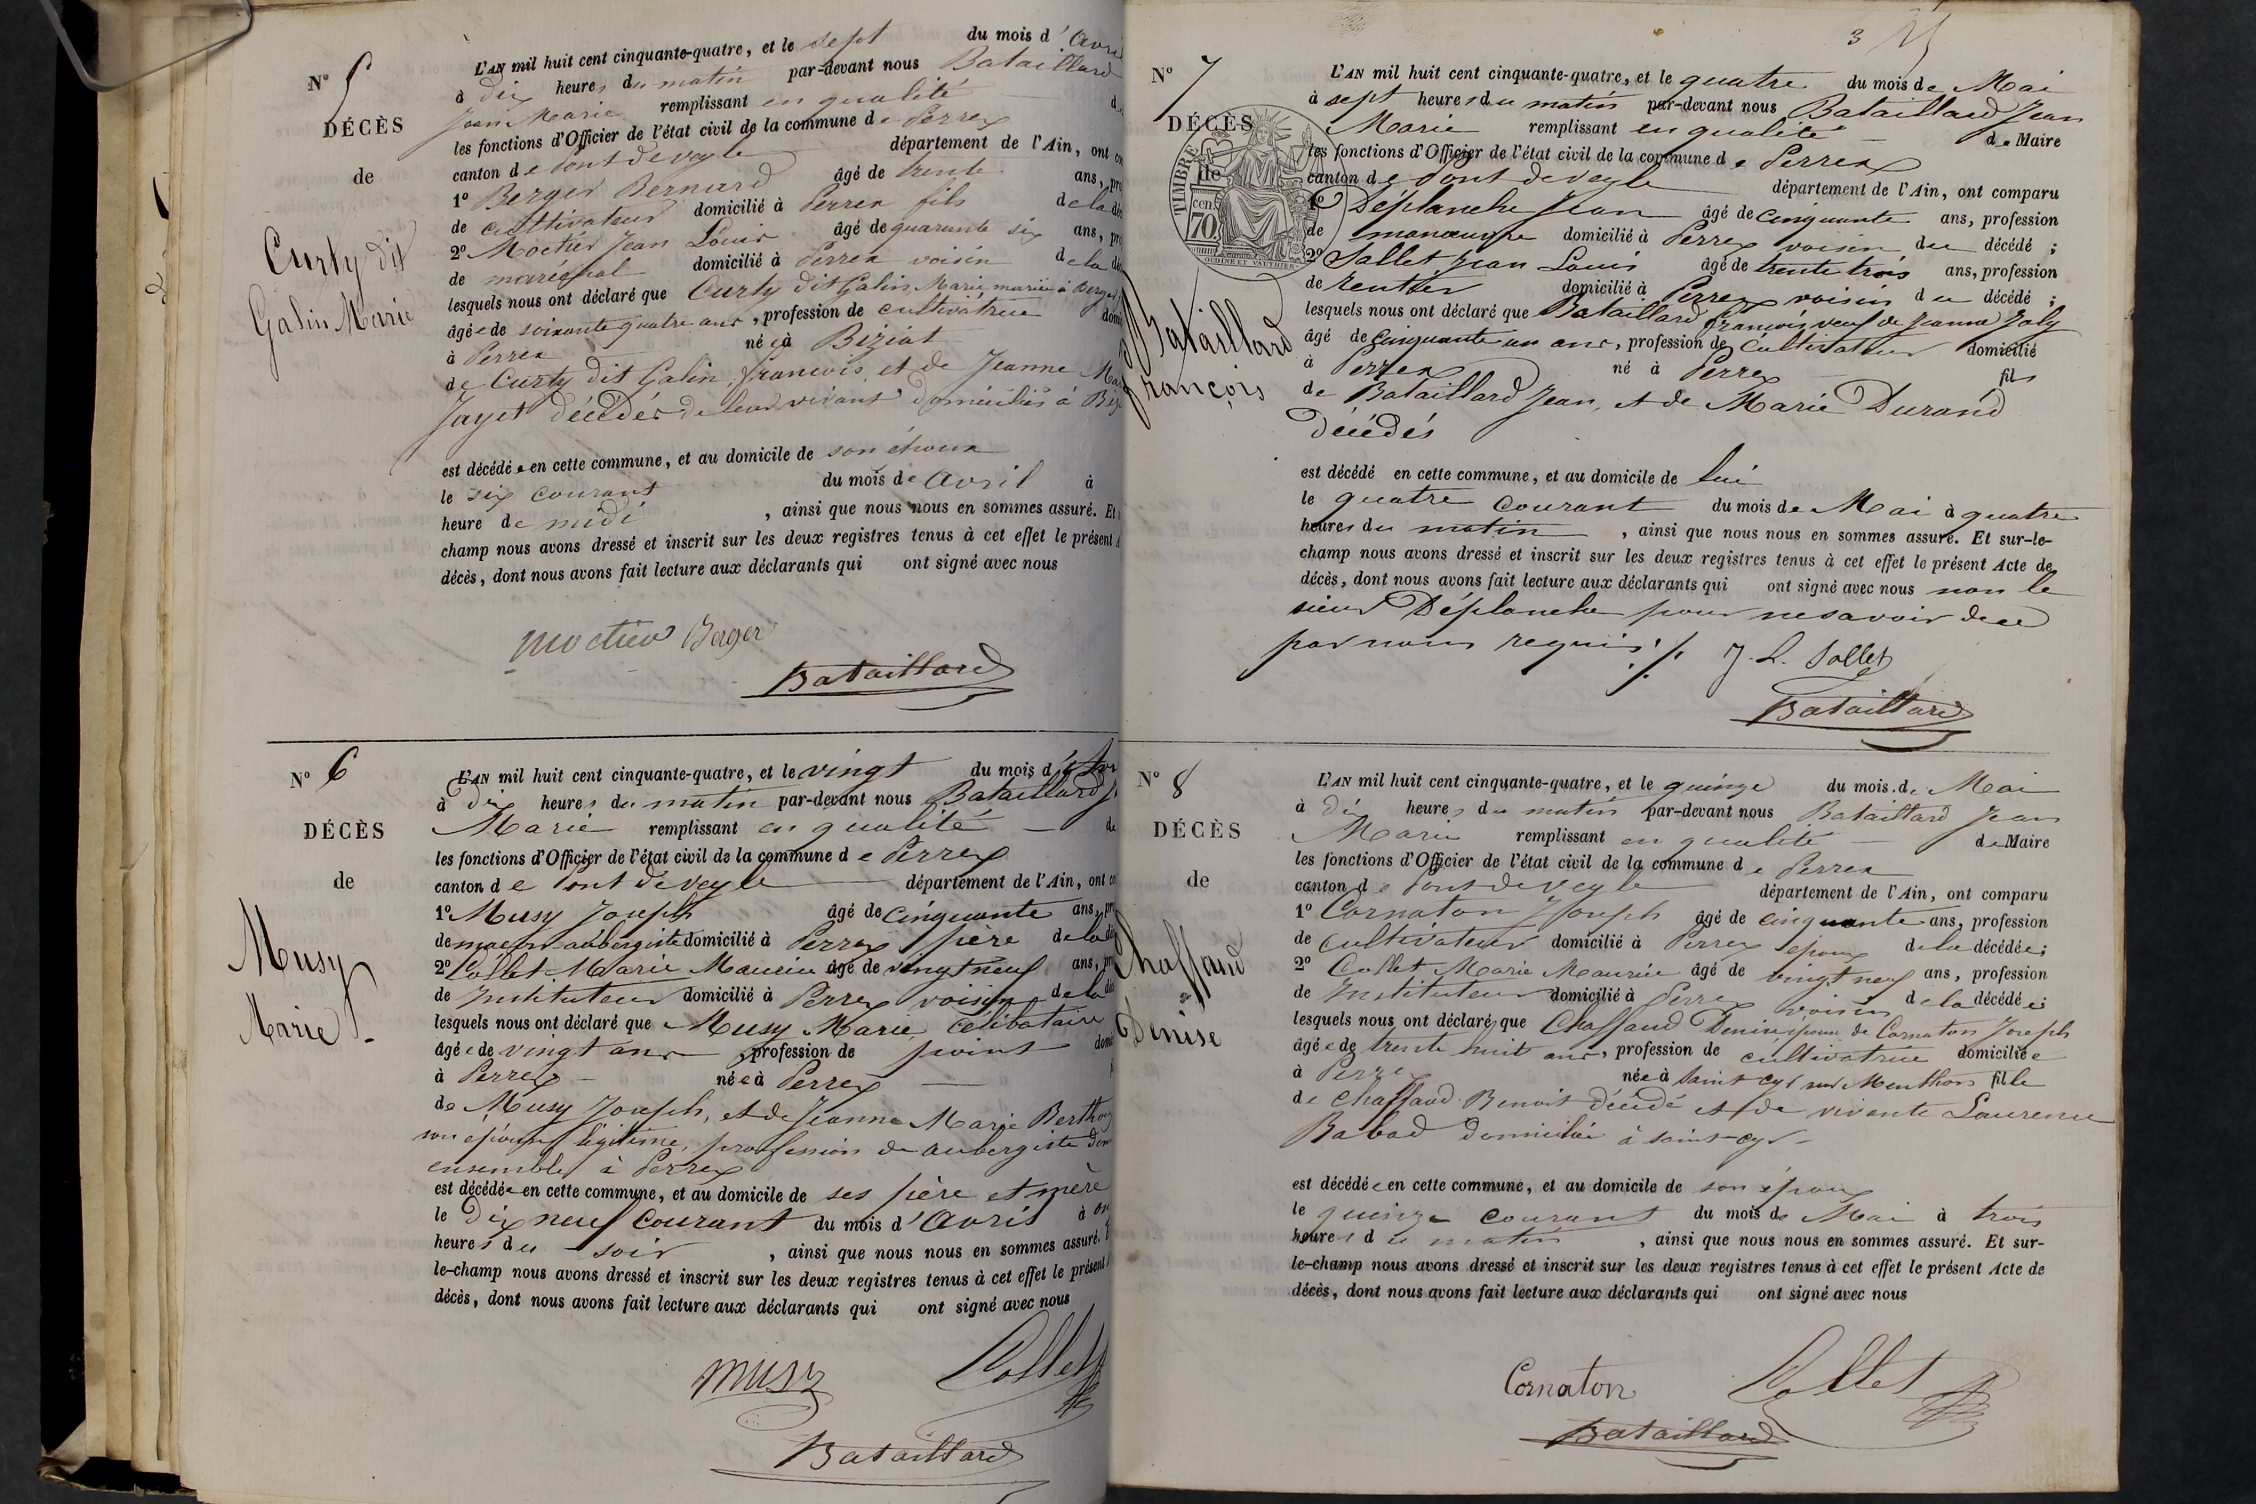 N° 5
DÉCÈS
de
Curty dit
Galin Marie
L'AN mil huit cent cinquante-quatre, et le sept du mois d'Avril
à dix heures du matin par-devant nous Bataillard
Jean Marie remplissant en qualité
les fonctions d'Officier de l'état civil de la commune de Perrex
canton de Pont de Veyle département de l'Ain, ont
1° Berger Bernard âgé de trente ans,
de cultivateur domicilié à Perrex fils de la
2° Moctier Jean Louis âgé de quarante six ans,
de maréchal domicilié à Perrex voisin de la
lesquels nous ont déclaré que Curty dit Galin Marie mariée à Berger
âgée de soixante quatre ans, profession de cultivatrice
à Perrex née à Biziat
de Curty dit Galin, françois, et de Jeanne
Jayet décédés de leur vivant domiciliés à
est décédée en cette commune, et au domicile de son époux
le six courant du mois de Avril à
heure de midi, ainsi que nous nous en sommes assuré. Et
champ nous avons dressé et inscrit sur les deux registres tenus à cet effet le présent
décès, dont nous avons fait lecture aux déclarants qui ont signé avec nous
Moctier Berger
Bataillard
N° 6
DÉCÈS
de
Musy
Marie
L'AN mil huit cent cinquante-quatre, et le vingt du mois d'
à dix heures du matin par-devant nous Bataillard
Marie remplissant en qualité
les fonctions d'Officier de l'état civil de la commune de Perrex
canton de Pont de Veyle département de l'Ain, ont
1° Musy Joseph âgé de cinquante ans,
de maçon aubergiste domicilié à Perrex père de la
2° Collet Marie Maurice âgé de vingt neuf ans,
de Instituteur domicilié à Perrex voisin de la
lesquels nous ont déclaré que Musy Marie, célibataire
âgée de vingt ans, profession de point
à Perrex née à Perrex
de Musy Joseph, et de Jeanne Marie
son épouse légitime, profession de aubergiste
ensemble à Perrex
est décédée en cette commune, et au domicile de ses père et mère
le dix neuf courant du mois d'Avril à
heures du soir, ainsi que nous nous en sommes assuré.
le-champ nous avons dressé et inscrit sur les deux registres tenus à cet effet le présent
décès, dont nous avons fait lecture aux déclarants qui ont signé avec nous
musy Collet
Bataillard
3
N° 7
DÉCÈS
TIMBRE
de
70
cen.
Bataillard
françois
L'AN mil huit cent cinquante-quatre, et le quatre du mois de Mai
à sept heures du matin par-devant nous Bataillard Jean
Marie remplissant en qualité de Maire
les fonctions d'Officier de l'état civil de la commune de Perrex
canton de Pont de Veyle département de l'Ain, ont comparu
1° Déplanche Jean âgé de cinquante ans, profession
de manœuvre domicilié à Perrex voisin du décédé ;
2° Sallet Jean Louis âgé de trente trois ans, profession
de rentier domicilié à Perrex voisin du décédé ;
lesquels nous ont déclaré que Bataillard françois veuf de Jeanne Joly
âgé de cinquante un ans, profession de cultivateur domicilié
à Perrex né à Perrex fils
de Bataillard Jean, et de Marie Durand
décédés
est décédé en cette commune, et au domicile de lui
le quatre courant du mois de Mai à quatre
heures du matin, ainsi que nous nous en sommes assuré. Et sur-le-
champ nous avons dressé et inscrit sur les deux registres tenus à cet effet le présent Acte de
décès, dont nous avons fait lecture aux déclarants qui ont signé avec nous non le
sieur Déplanche pour ne savoir de ce
par nous requis ./.
J. L. Sallet
Bataillard
N° 8
DÉCÈS
de
Chaffaud
Denise
L'AN mil huit cent cinquante-quatre, et le quinze du mois de Mai
à dix heures du matin par-devant nous Bataillard Jean
Marie remplissant en qualité de Maire
les fonctions d'Officier de l'état civil de la commune de Perrex
canton de Pont de Veyle département de l'Ain, ont comparu
1° Cornaton Joseph âgé de cinquante ans, profession
de cultivateur domicilié à Perrex époux de la décédée ;
2° Collet Marie Maurice âgé de vingt neuf ans, profession
de Instituteur domicilié à Perrex voisin de la décédée ;
lesquels nous ont déclaré que Chaffaud Denise épouse de Cornaton Joseph
âgée de trente huit ans, profession de cultivatrice domiciliée
à Perrex née à Saint Cyr sur Menthon fille
de Chaffaud Benoit décédé et de vivante Laurence
Babad domiciliée à Saint-Cyr
est décédée en cette commune, et au domicile de son époux
le quinze courant du mois de Mai à trois
heures du matin, ainsi que nous nous en sommes assuré. Et sur-
le-champ nous avons dressé et inscrit sur les deux registres tenus à cet effet le présent Acte de
décès, dont nous avons fait lecture aux déclarants qui ont signé avec nous
Cornaton Collet
Bataillard